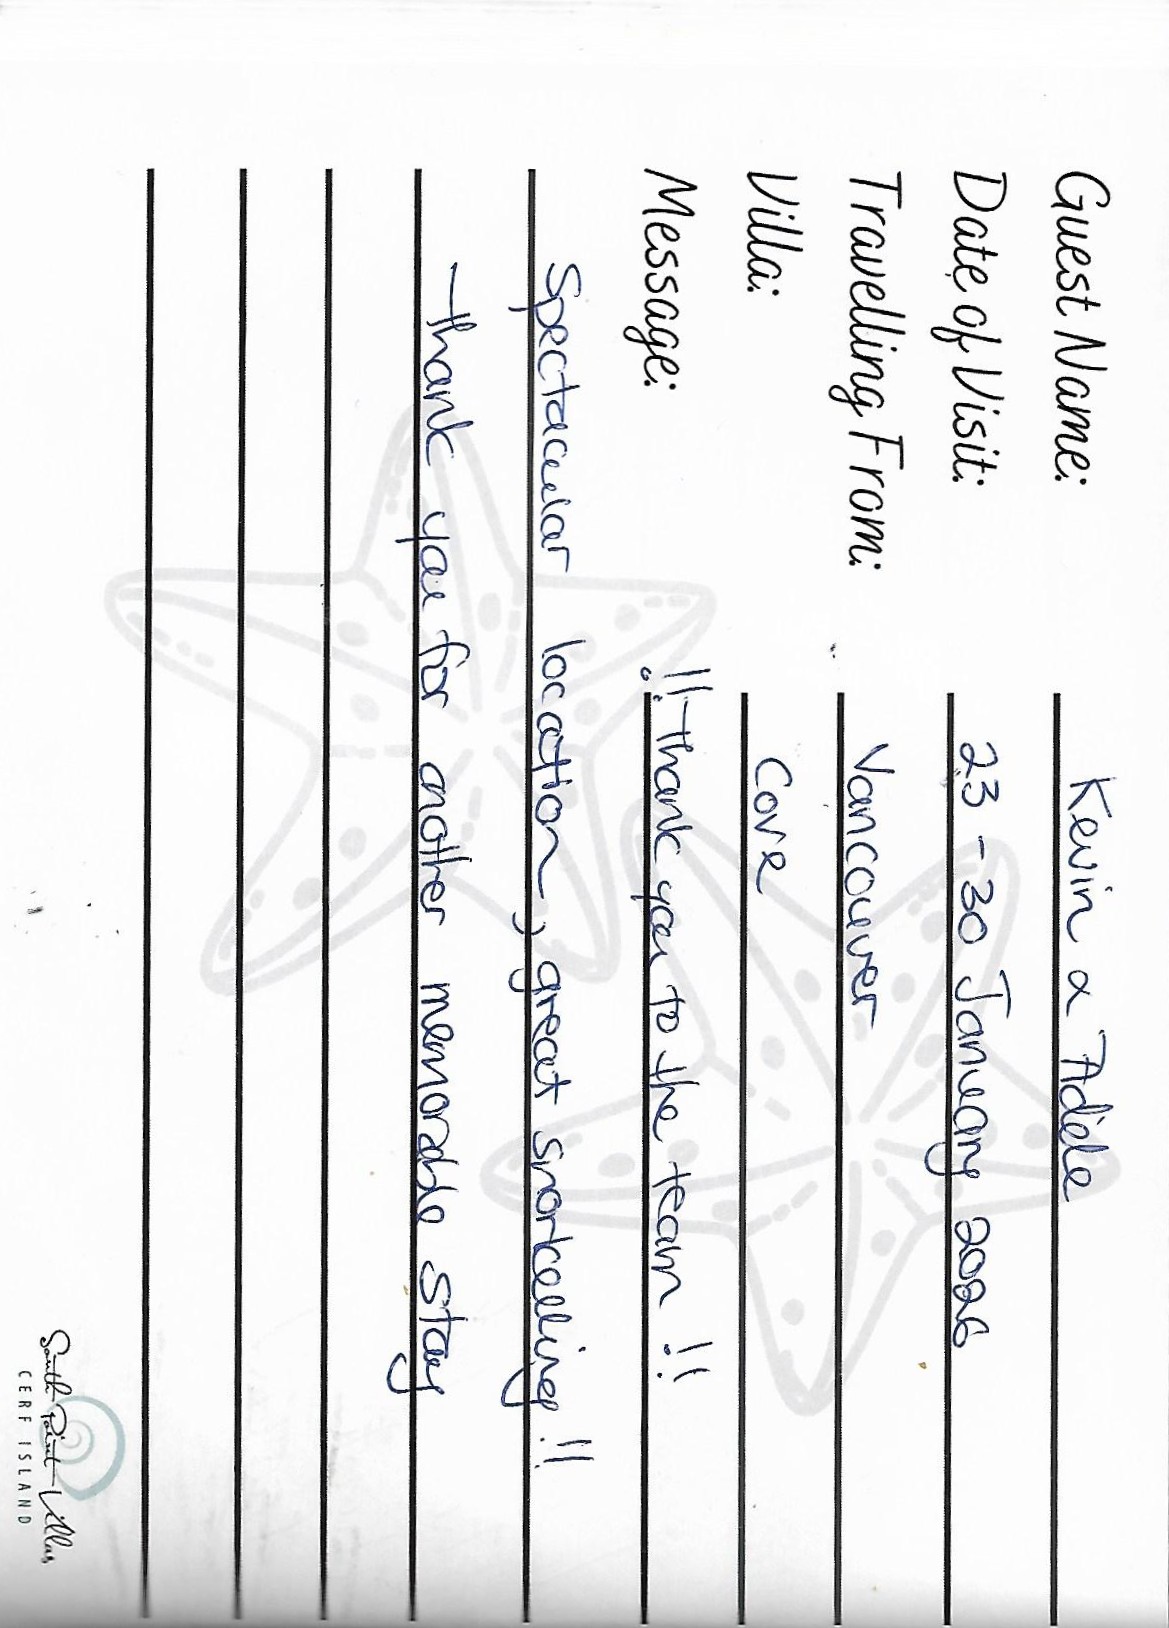 Guest Name: Kevin & Adele
Date of Visit: 23 - 30 January 2026
Travelling From: Vancouver
Villa: Cove
Message: !! Thank you to the team !!
Spectacular location, great snorkelling !!
Thank you for another memorable stay
South Point Villas
CERF ISLAND